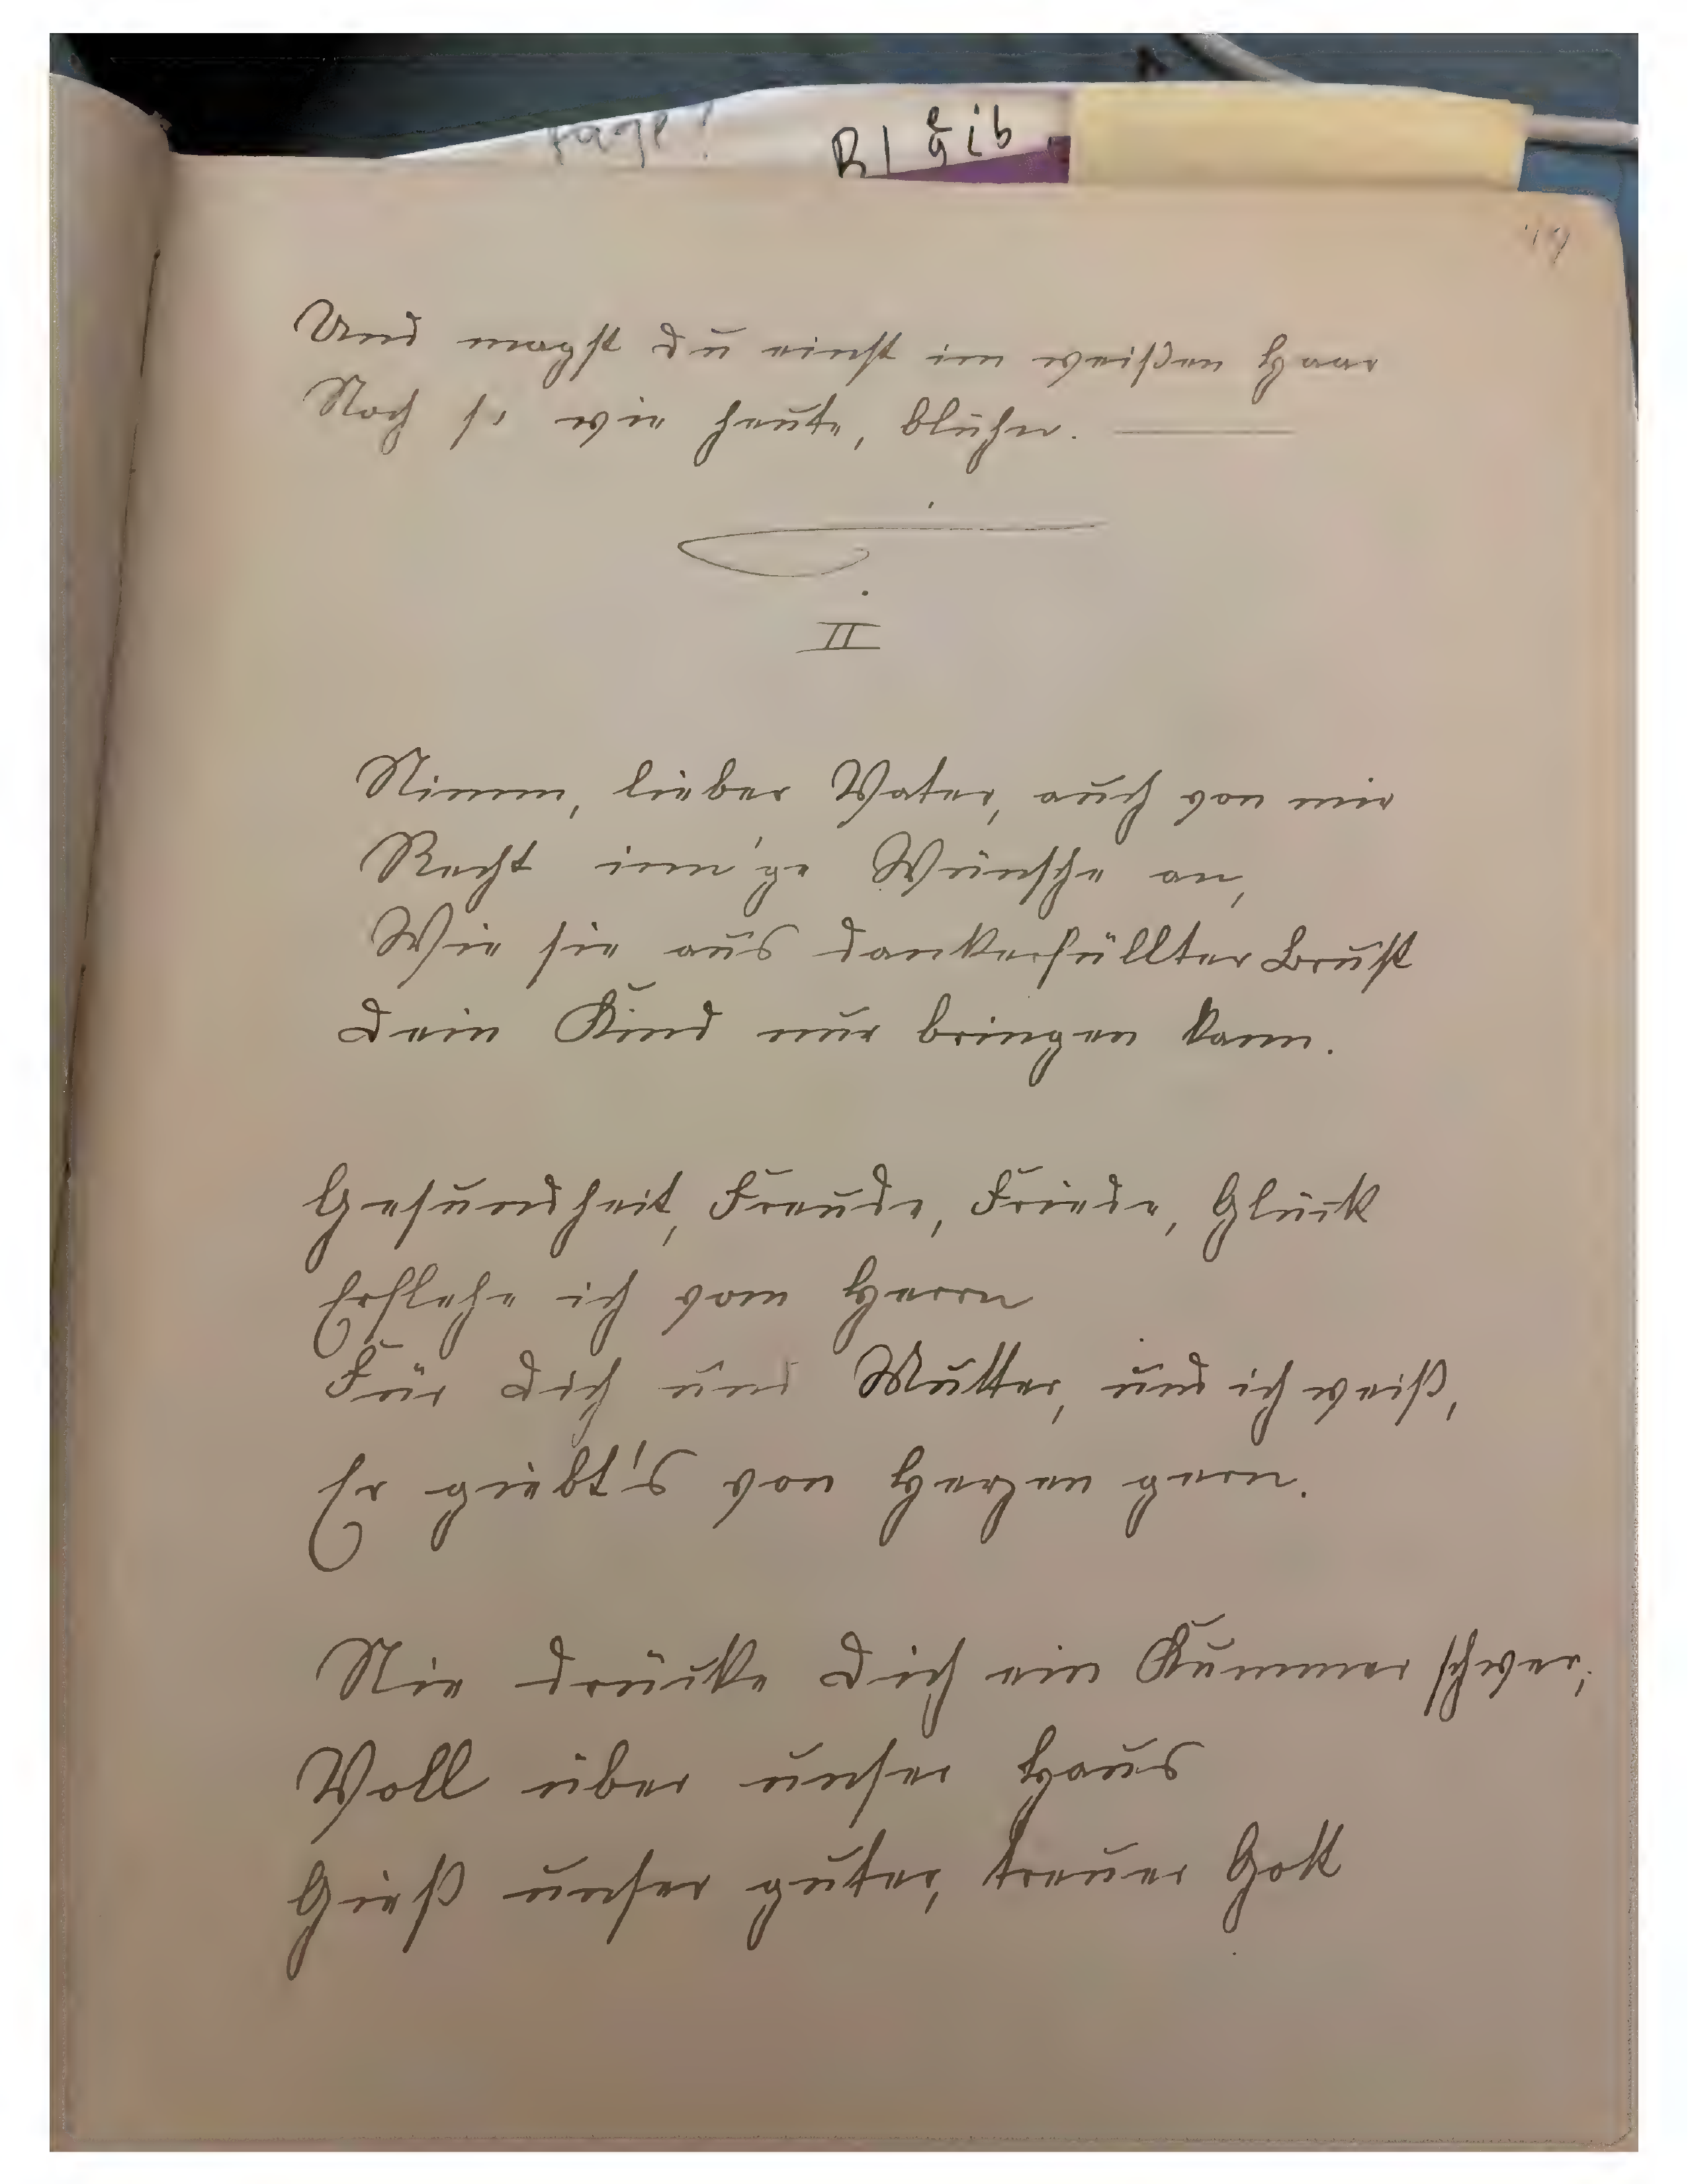 Und magst du einst im weißen Haar
Noch so wie heute, blühn.
II
Nimm, lieber Vater, auch von mir
Recht inn'ge Wünsche an,
Wie sie aus dankerfüllter Brust
Dein Kind nur bringen kann.
Gesundheit, Freude, Friede, Glück
Erflehe ich vom Herrn
Für Dich und Mutter, und ich weiß,
Er giebt's von Herzen gern.
Nie drücke Dich ein Kummer schwer;
Voll über unser Haus
Gieß unser guter, treuer Gott